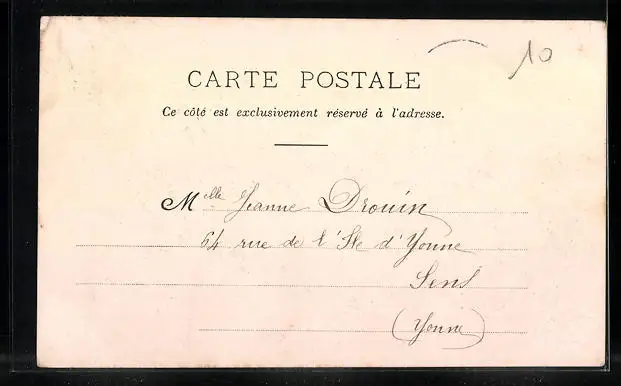 10
CARTE POSTALE
Ce côté est exclusivement réservé à l'adresse.
Melle Jeanne Drouin
64 rue de l'Ile d'Yonne
Sens
(Yonne)